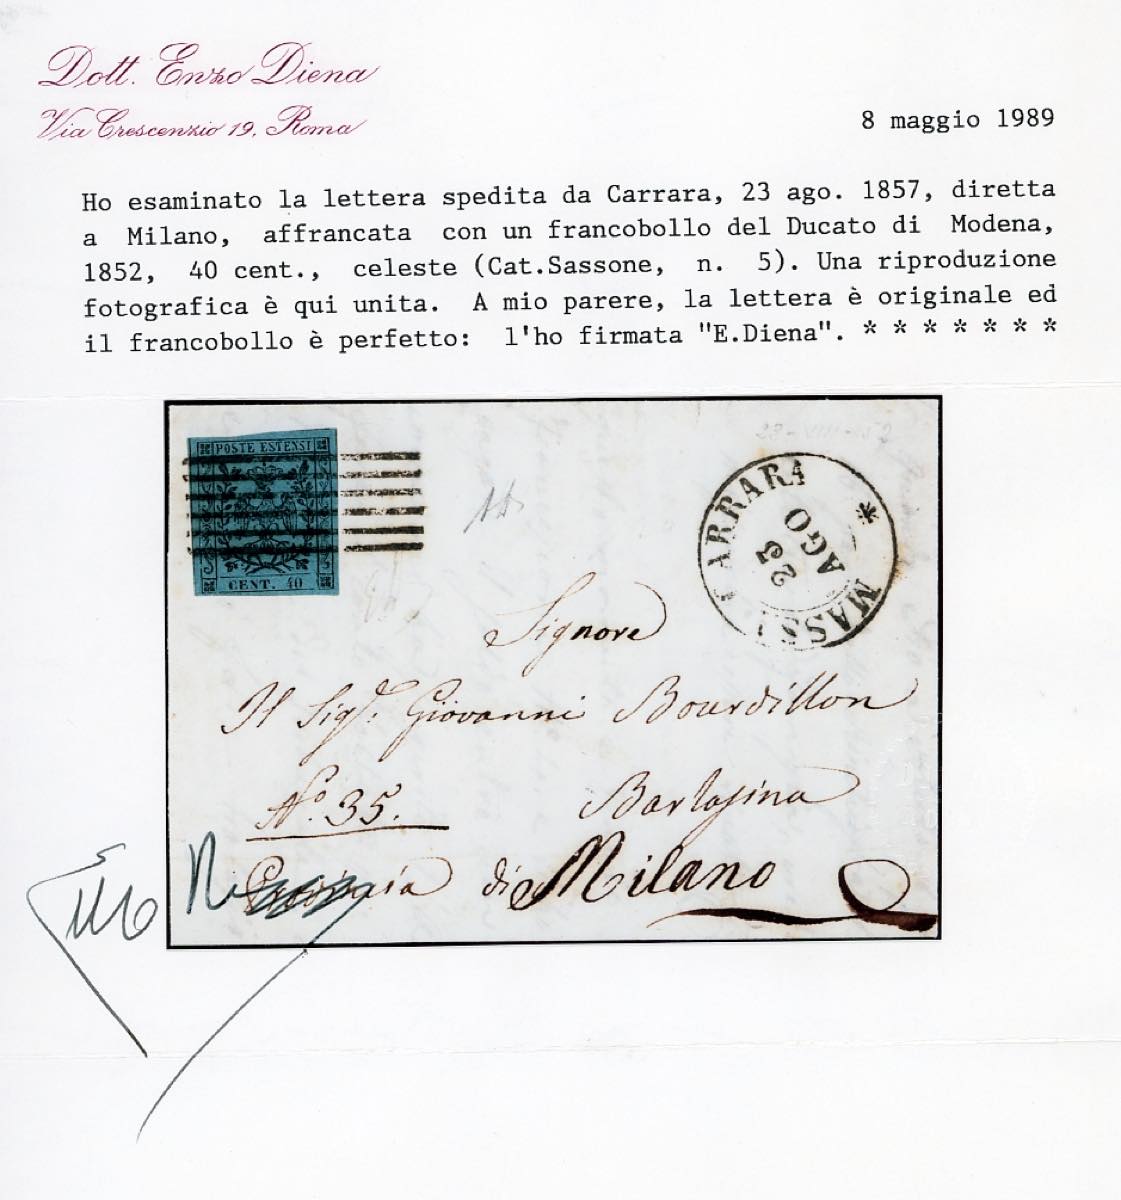 Dott. Enzo Diena
Via Crescenzio 19, Roma
8 maggio 1989
Ho esaminato la lettera spedita da Carrara, 23 ago. 1857, diretta
a Milano, affrancata con un francobollo del Ducato di Modena,
1852, 40 cent., celeste (Cat.Sassone, n. 5). Una riproduzione
fotografica è qui unita. A mio parere, la lettera è originale ed
il francobollo è perfetto: l'ho firmata "E.Diena". * * * * * * *
POSTE ESTENSI
CENT. 40
MASSA CARRARA
23
AGO
Signore
Il Sigr. Giovanni Bourdillon
No. 35. Barlasina
Provincia di Milano